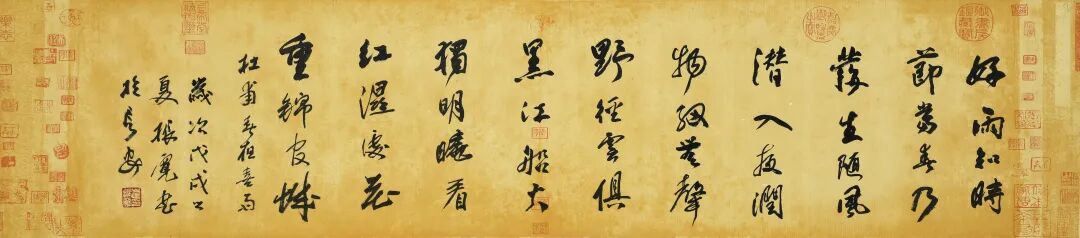 好雨知時
節當春乃
發生随風
潛入夜潤
物細無聲
野徑雲俱
黑江船火
獨明曉看
紅濕處花
重錦官城
杜甫春夜喜雨
歲次戊戌之
夏振書
於長安